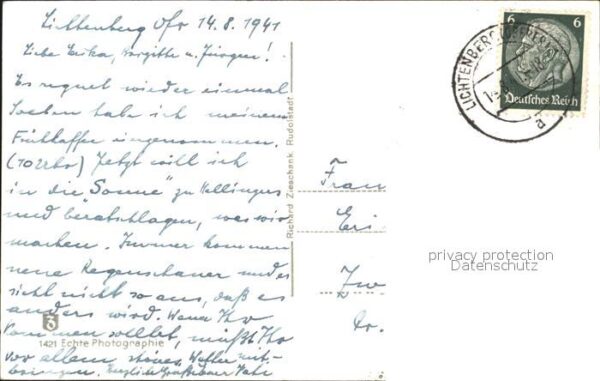 Lichtenberg Ofr 14.8.1941
Liebe Erika, Brigitte u. Jürgen!
Es regnet wieder einmal
Soeben habe ich meinen
Frühkaffee eingenommen.
(10 Uhr) Jetzt will ich
in die "Sonne" zu
und beratschlagen, was wir
machen. Immer kommen
neue Regenschauer und es
sieht nicht so aus, daß es
anders wird. Wenn Ihr
kommen solltet, müßt Ihr
vor allem schönes Wetter mit-
bringen. Herzliche Grüße Euer
1421 Echte Photographie
Richard Zieschank, Rudolstadt
Frau
Eri
Zw
6 6
Deutsches Reich
LICHTENBERG
a
privacy protection
Datenschutz